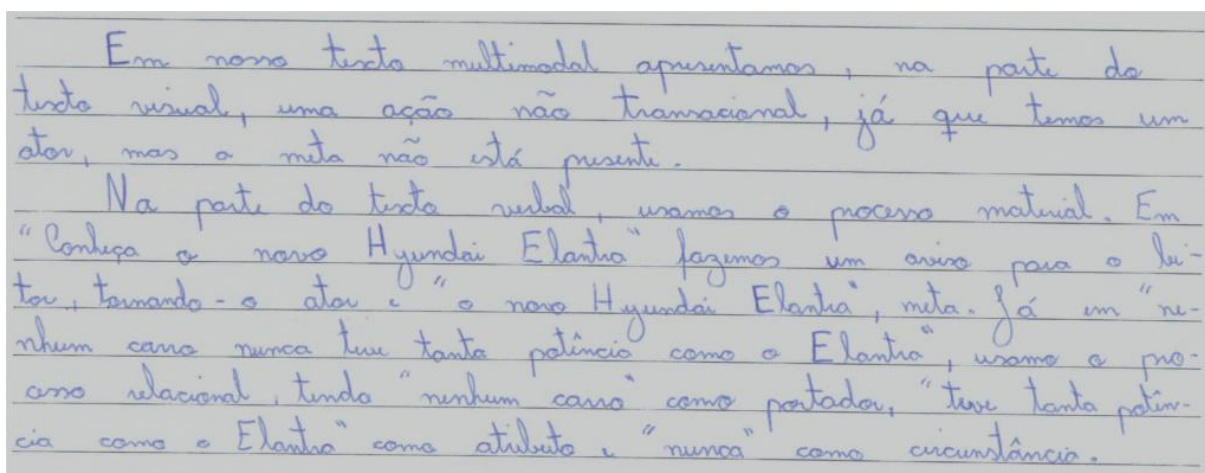 Em nosso texto multimodal apresentamos, na parte do
texto visual, uma ação não transacional, já que temos um
ator, mas a meta não está presente.
Na parte do texto verbal, usamos o processo material. Em
"Conheça o novo Hyundai Elantra" fazemos um aviso para o lei-
tor, tornando-o ator e "o novo Hyundai Elantra", meta. Já em "ne-
nhum carro nunca teve tanta potência como o Elantra", usamo o pro-
cesso relacional, tendo "nenhum carro" como portador, "teve tanta potên-
cia como o Elantra" como atributo e "nunca" como circunstância.